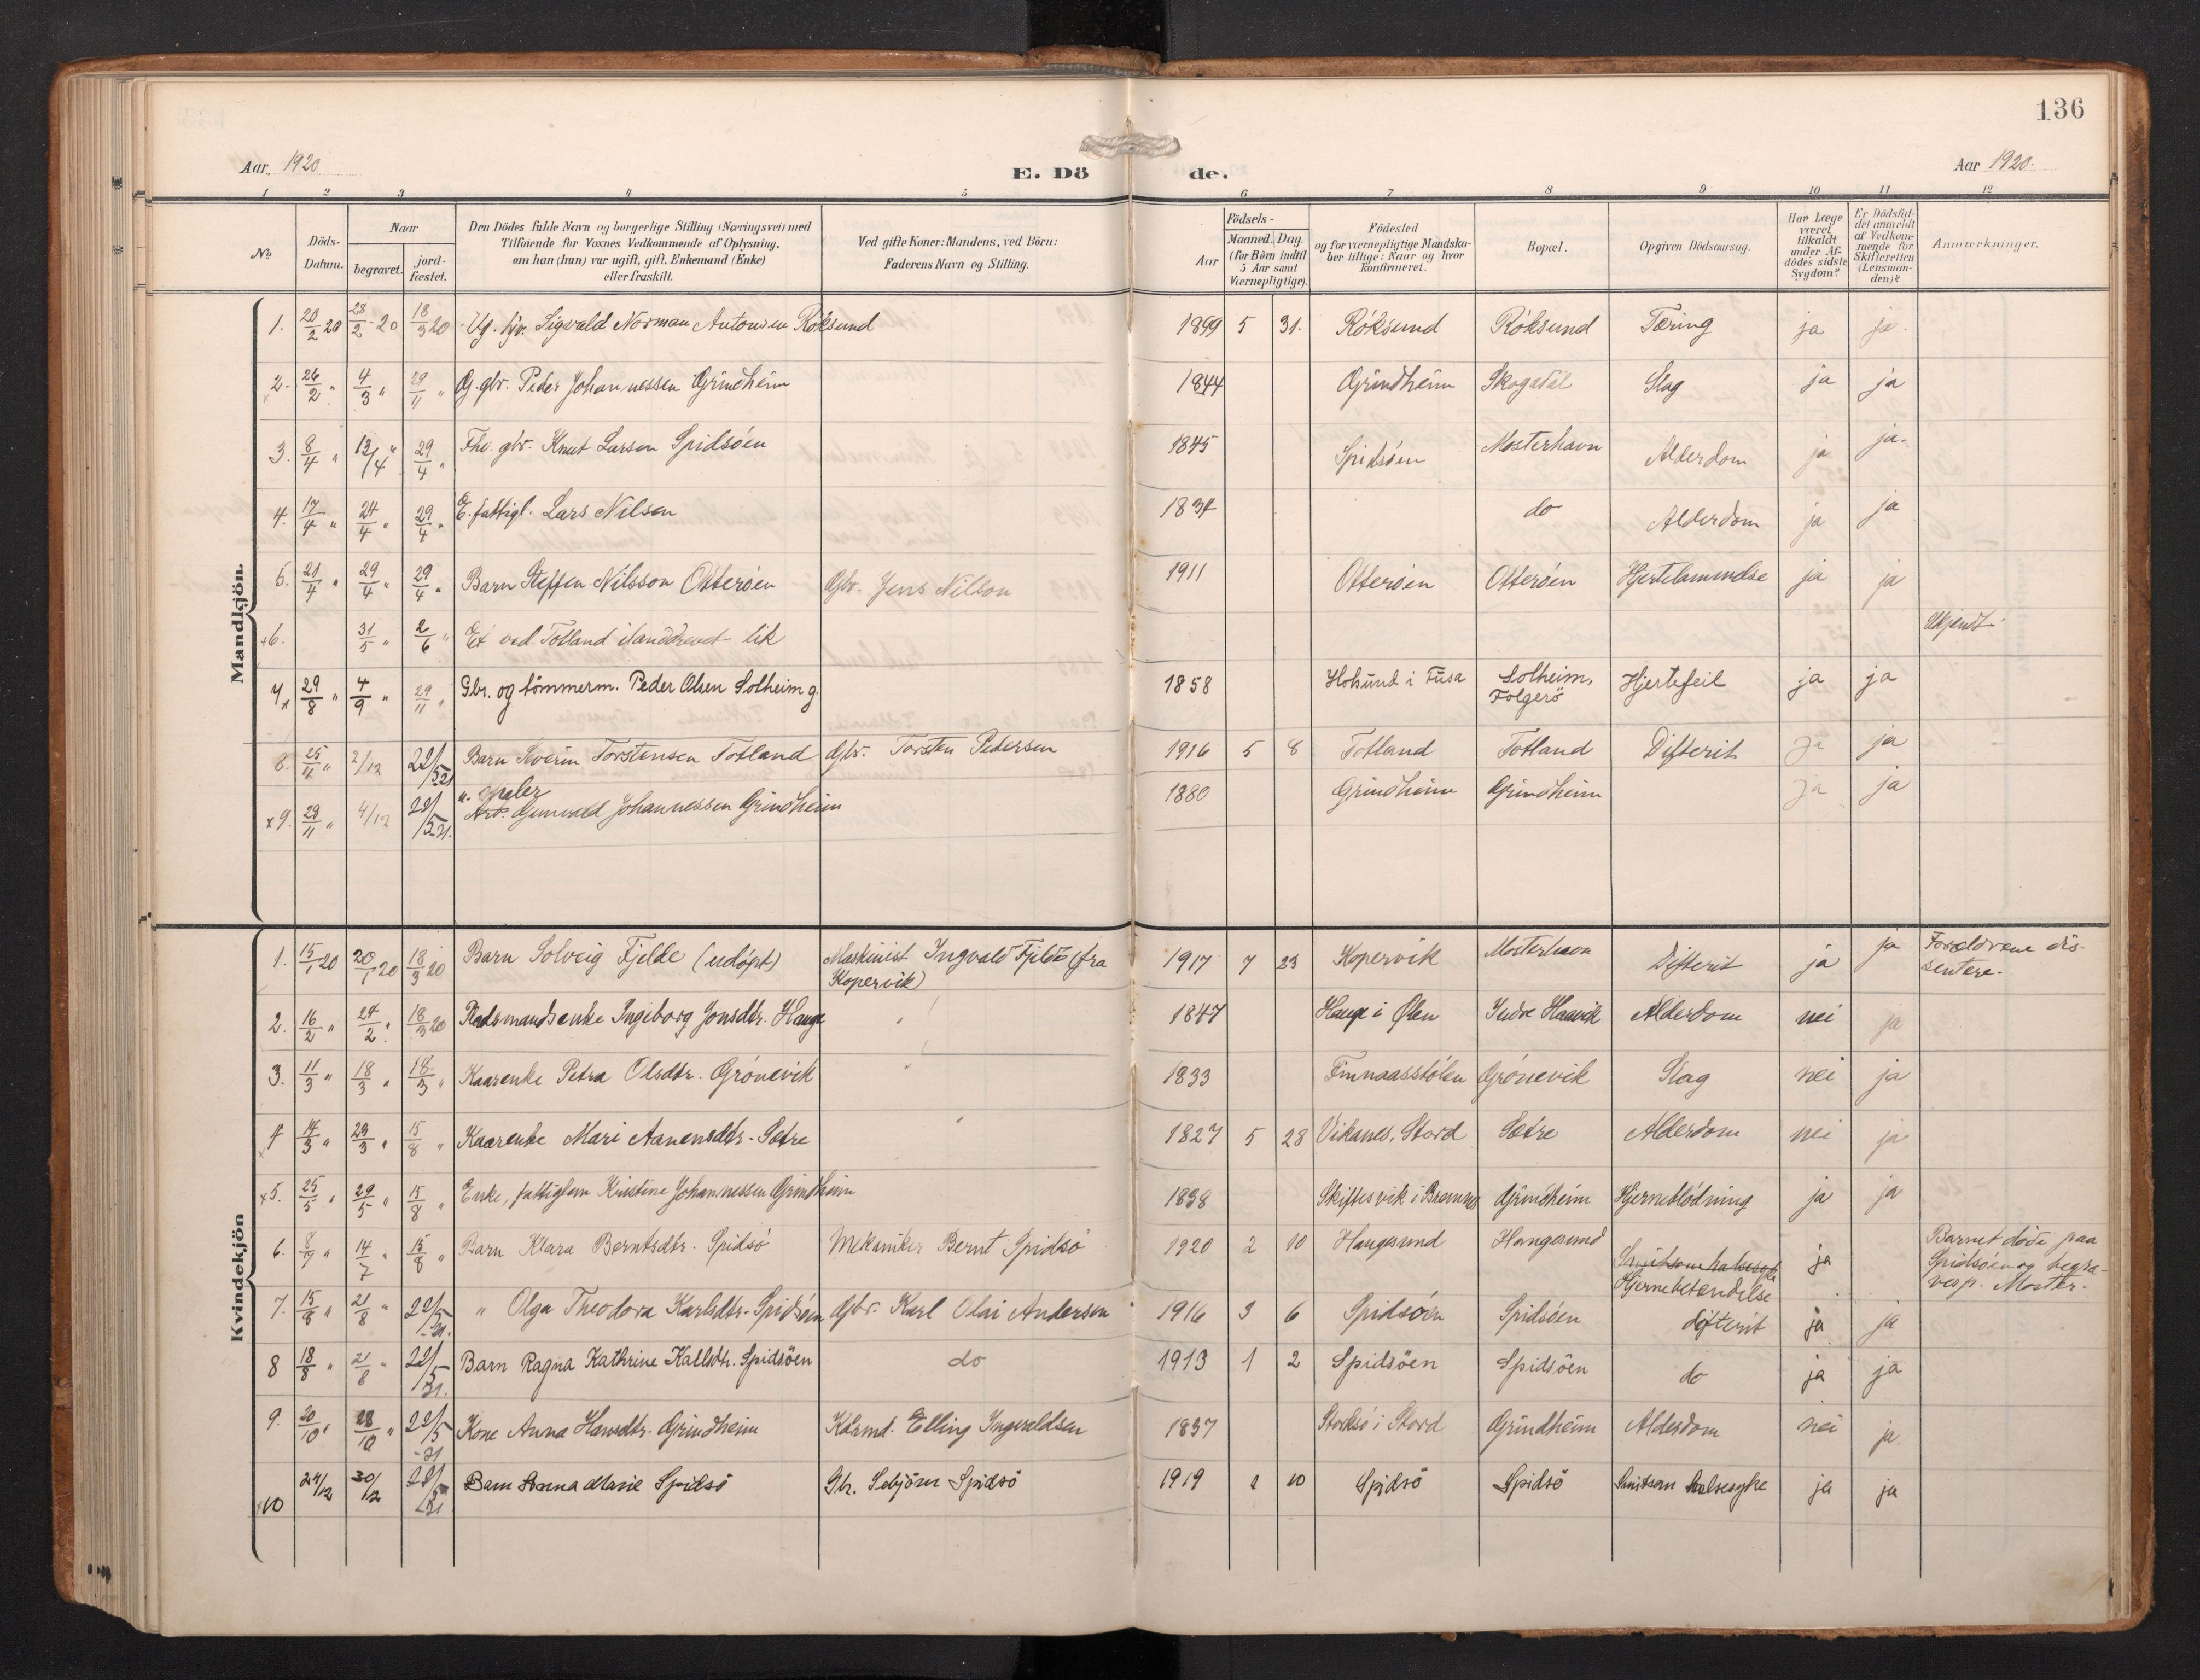 136
Aar 1920
E. Dö de.
Aar 1920.
1 2 3 4 5 6 7 8 9 10 11 12
No
Döds-Datum.
Naar
begravet.
jord-fæstet.
Den Dödes fulde Navn og borgerlige Stilling (Næringsvei) med
Tilföiende for Voxnes Vedkommende af Oplysning,
om han (hun) var ugift, gift, Enkemand (Enke)
eller fraskilt.
Ved gifte Koner: Mandens, ved Börn:
Faderens Navn og Stilling.
Födsels-
Aar
Maaned. Dag.
(for Börn indtil
5 Aar samt
Værnepligtige).
Födested
og for værnepligtige Mandska-
ber tillige: Naar og hvor
konfirmeret.
Bopæl.
Opgiven Dödsaarsag.
Har Læge
været
tilkaldt
under Af-
dödes sidste
Sygdom?
Er Dödsfal-
det anmeldt
af Vedkom-
mende for
Skifteretten
(Lensman-
den)?
Anmærkninger.
Mandkjön.
1. 20/2 20 28/2-20 18/3 20 Ug. fv. Sigvald Norman Antonsen Röksund 1899 5 31. Röksund Röksund Tæring ja ja.
2. 26/2 " 4/3 " 29/11 " G. gbr. Peder Johannessen Grindheim 1844 Grindheim Skogadal Slag ja ja
3. 8/4 " 13/4 " 29/4 " Fhv. gbr. Knut Larsen Spidsöen 1845 Spidsöen Mosterhavn Alderdom ja ja.
4. 17/4 " 24/4 " 29/4 " E. fattigl. Lars Nilsen 1834 do Alderdom ja ja
5. 21/4 " 29/4 " 29/4 " Barn Steffen Nilsson Otteröen Gbr. Jens Nilson 1911 Otteröen Otteröen Hjertelammelse ja ja
x6. 31/5 " 2/6 " Et ved Totland ilanddrevet lik Ukjendt
7x 29/8 " 4/9 " 29/11 " Gbr. og tömmerm. Peder Olsen Solheim g. 1858 Hohund i Fusa Solheim, Folgerö Hjertefeil ja ja
8. 25/11 " 2/12 22/5 21 Barn Severin Torstensen Totland Gbr. Torsten Pedersen 1916 5 8 Totland Totland Difterit ja ja
u. maler
x9. 29/11 " 4/12 22/5 21. Arb. Gunvald Johannessen Grindheim 1880 Grindheim Grindheim ja ja
Kvindekjön
1. 15/1 20 20/1 20 18/3 20 Barn Solveig Fjelde (udöpt) Maskinist Ingvald Fjelde (fra Kopervik) 1917 7 23 Kopervik Mosterhavn Difterit ja ja Forældrene dis-
sentere.
2. 16/2 " 24/2 " 18/3 20 Pladsmandsenke Ingeborg Jonsdtr. Hauge 1847 Hauge i Ølen Indre Haavik Alderdom nei ja
3. 11/3 " 18/3 " 18/3 " Kaarenke Petra Olsdtr. Grönevik 1833 Finnaasstölen Grönevik Slag nei ja
4 14/3 " 23/3 " 15/8 " Kaarenke Mari Aanensdtr. Sætre 1827 5 28 Vikanes, Stord Sætre Alderdom nei ja
x5. 25/5 " 29/5 " 15/8 " Enke, fattiglem Kristine Johannessen Grindheim 1838 Skiftesvik i Bremnes Grindheim Hjerneblödning ja ja
6. 8/7 " 14/7 " 15/8 " Barn Klara Berntsdtr. Spidsö Mekaniker Bernt Spidsö 1920 2 10 Haugesund Haugesund Smitsom halsesyke Hjernebetændelse ja Barnet döde paa
Spidsöen og begra-
ves p. Moster.
7. 15/8 " 21/8 " 22/5 21. " Olga Theodora Karlsdtr. Spidsöen Gbr. Karl Olai Andersen 1916 3 6 Spidsöen Spidsöen difterit ja ja
8 18/8 " 21/8 " 22/5 21. Barn Ragna Kathrine Kallsdtr. Spidsöen do 1913 1 2 Spidsöen Spidsöen do ja ja
9. 20/10 " 28/10 " 22/5 21 Kone Anna Hansdtr. Grindheim Kårmd. Elling Ingvaldsen 1837 Stoksö i Stord Grindheim Alderdom nei ja.
x10 24/12 30/12 22/5 21 Barn Anna Marie Spidsö Gbr. Sebjörn Spidsö 1919 1 10 Spidsö Spidsö Smitsom halsesyke ja ja